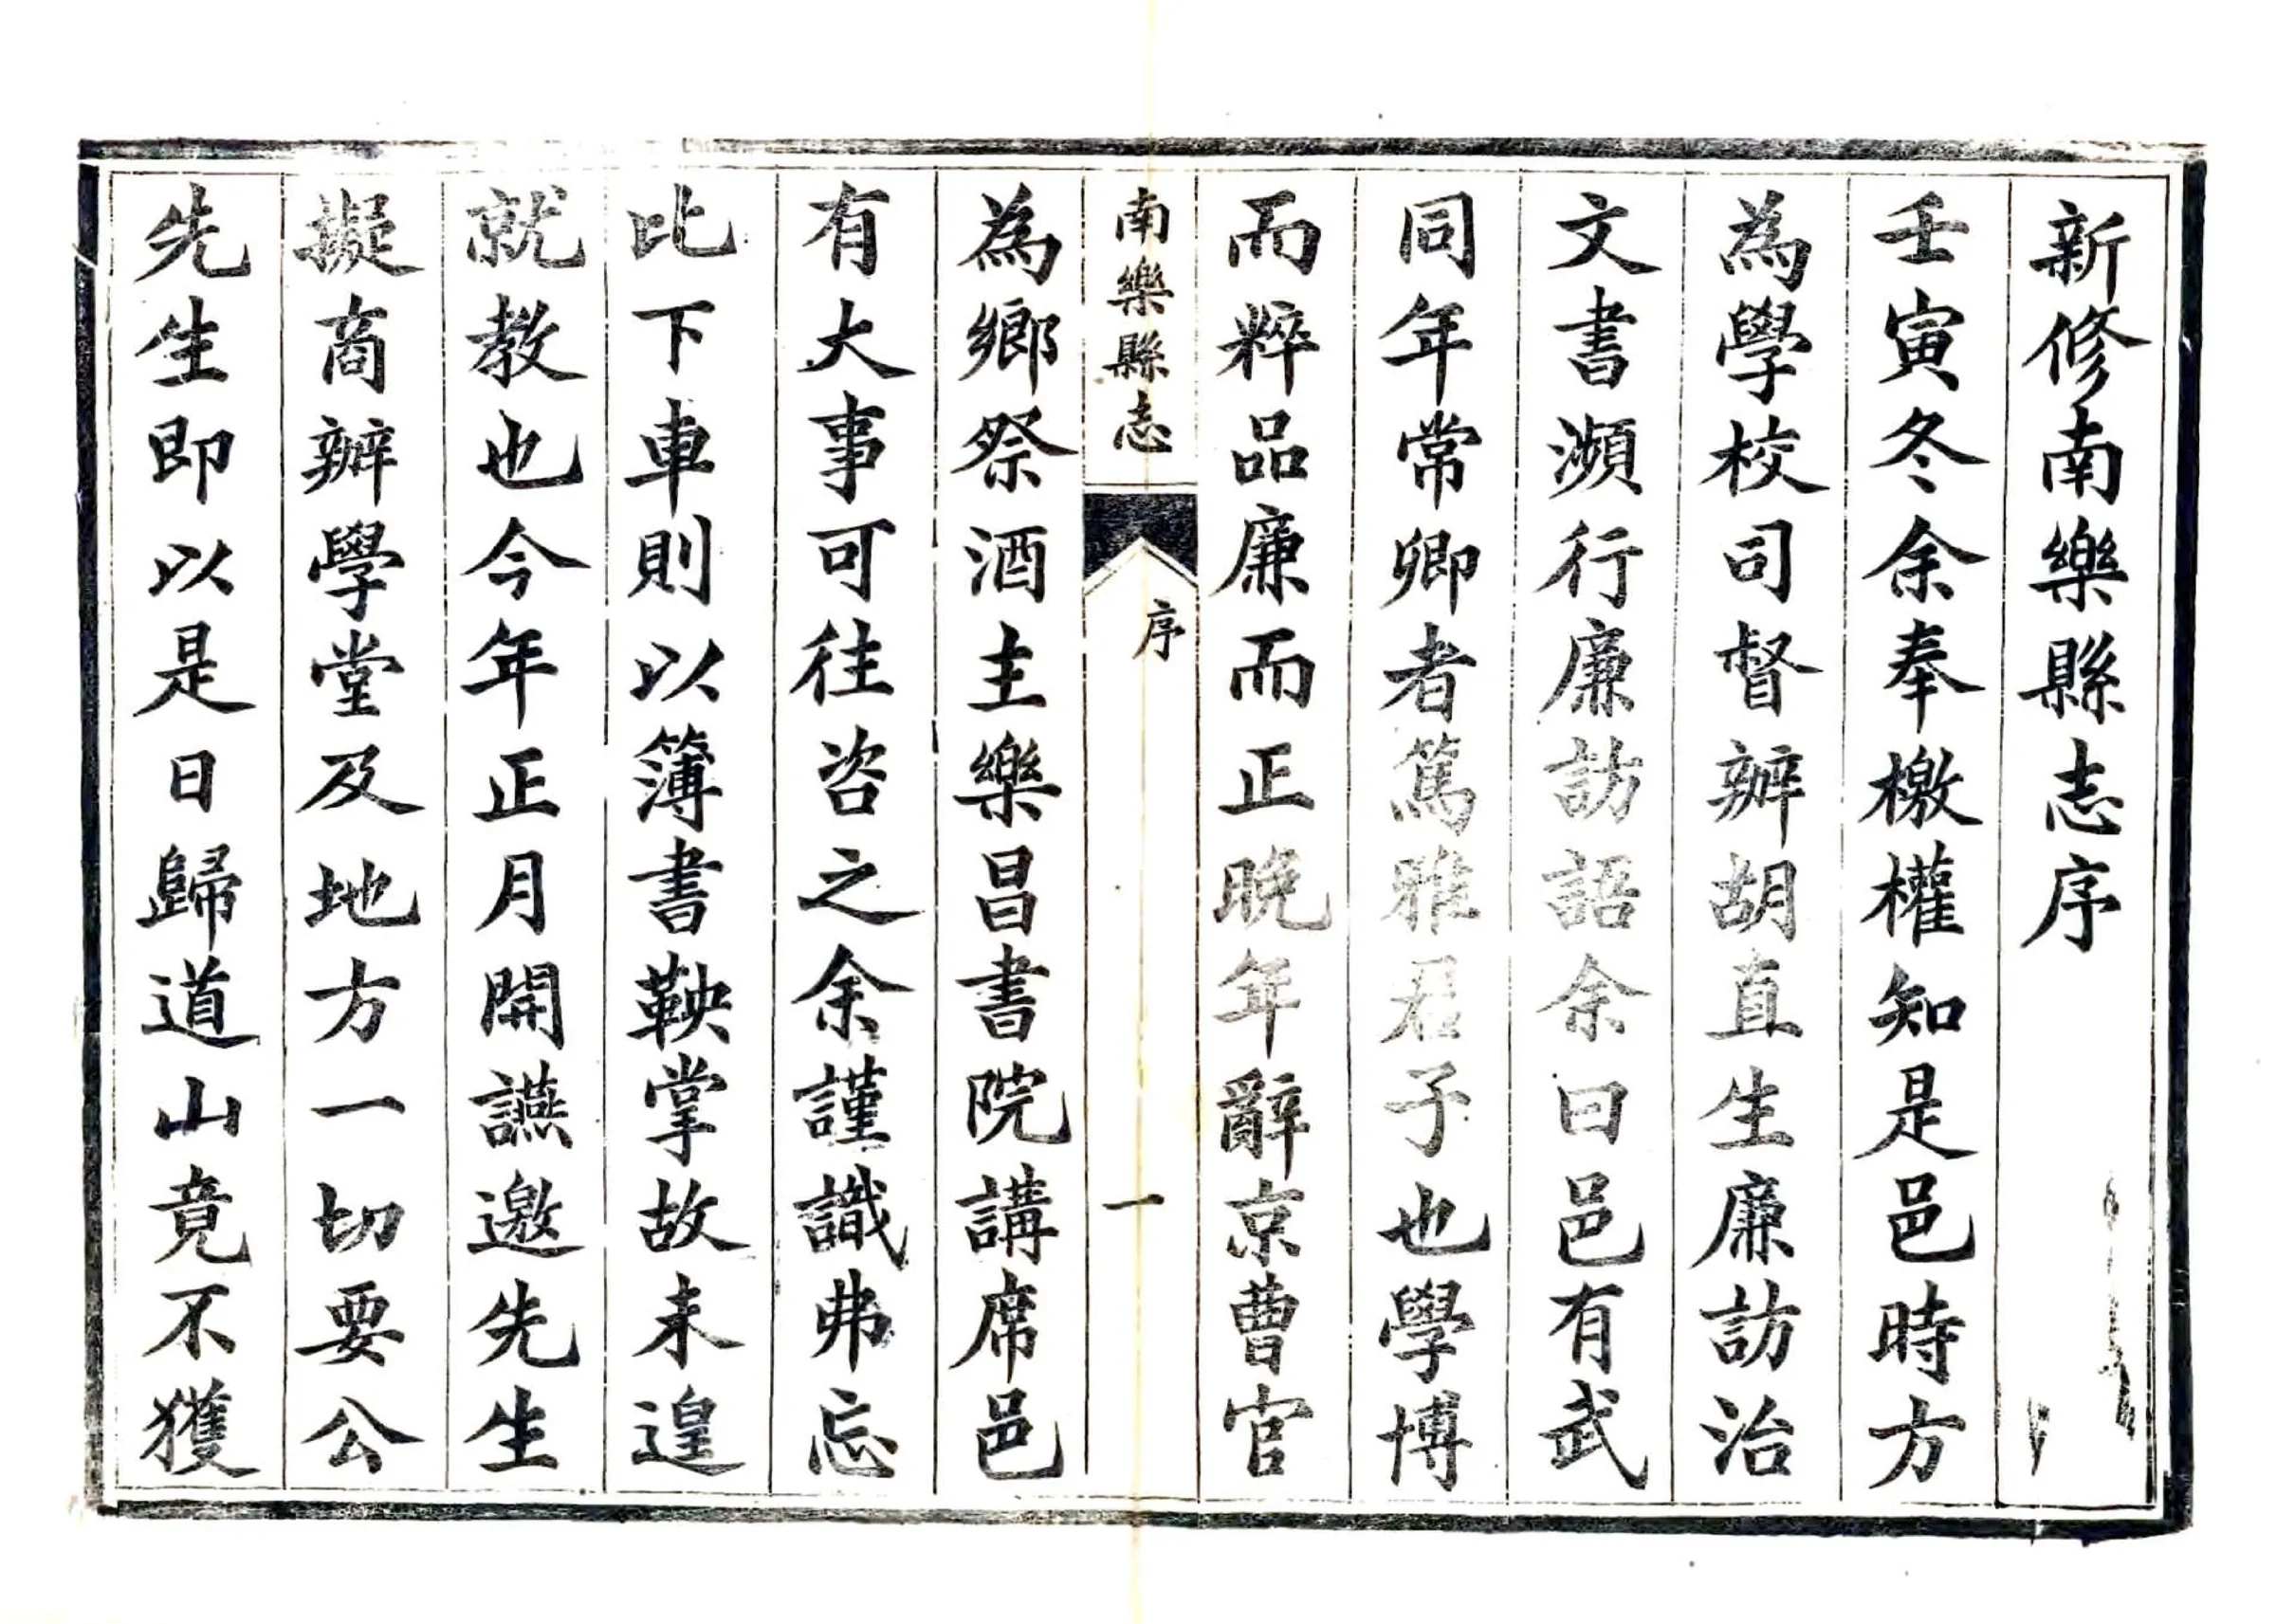 新修南樂縣志序
壬寅冬余奉檄權知是邑時方
為學校司督辦胡直生廉訪治
文書瀕行廉訪語余曰邑有武
同年常卿者篤雅君子也學博
而粹品廉而正晚年辭京曹官
南樂縣志
序
一
為鄉祭酒主樂昌書院講席邑
有大事可往咨之余謹識弗忘
比下車則以簿書鞅掌故未遑
就教也今年正月開讌邀先生
擬商辦學堂及地方一切要公
先生即以是日歸道山竟不獲